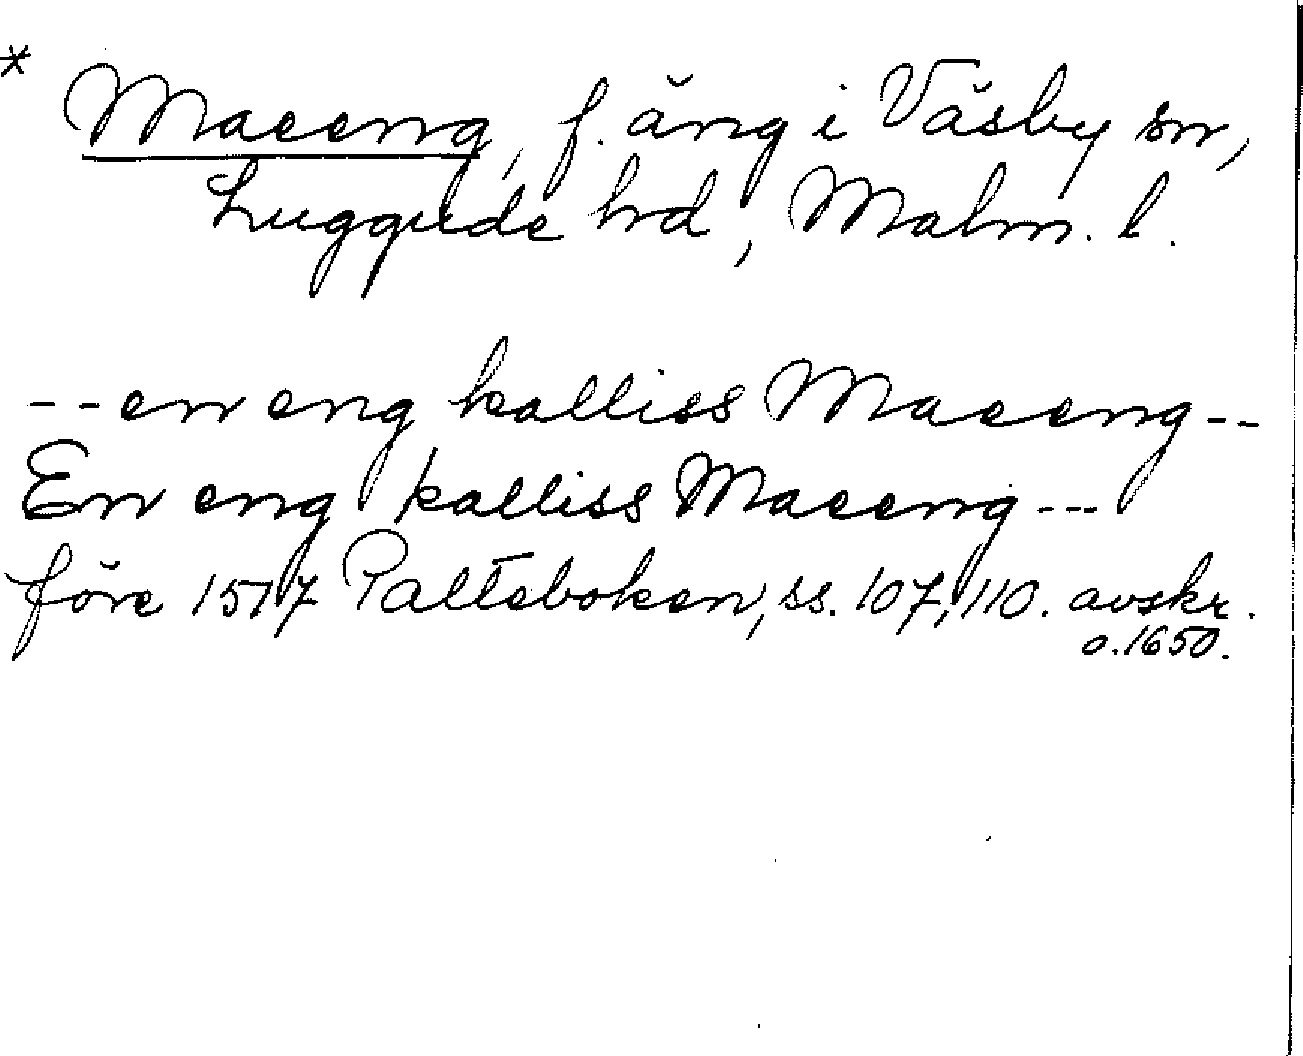 * Maeeng, f. äng i Väsby sn,
Luggude hd, Malm. l.
-- en eng kalliss Maeeng --
En eng kalliss Maeeng ---
före 1517 Palteboken, ss. 107, 110. avskr.
o. 1650.